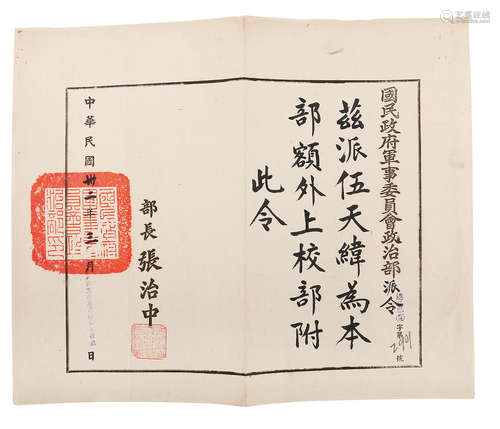 國民政府軍事委員會政治部派令
字第2901號
茲派伍天緯為本
部額外上校部附
此令
部長張治中
中華民國卅二年三月日